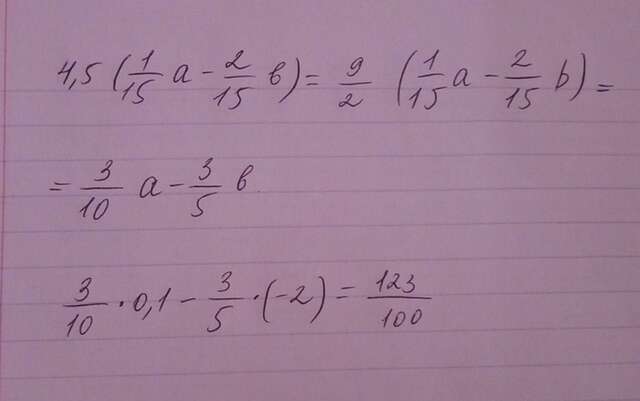 4,5 (1/15 a - 2/15 в) = 9/2 (1/15 a - 2/15 b) =
= 3/10 a - 3/5 в.
3/10 · 0,1 - 3/5 · (-2) = 123/100